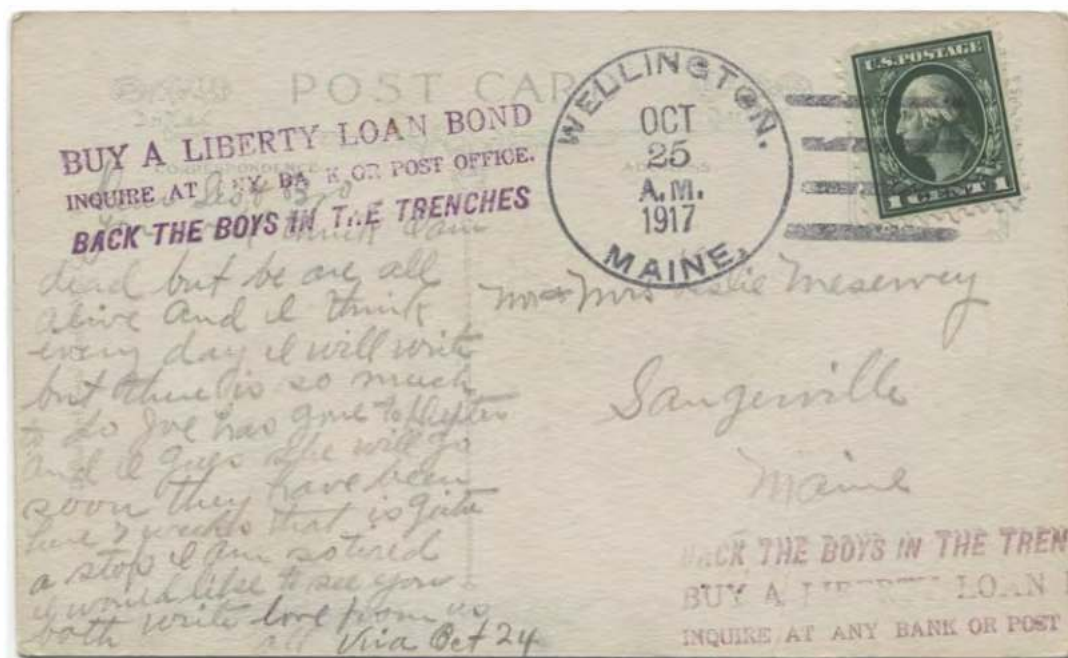 POST CAR
BUY A LIBERTY LOAN BOND
INQUIRE AT NY BA K OR POST OFFICE.
BACK THE BOYS IN THE TRENCHES
CORRESPONDENCE
WELLINGTON.
OCT
25
A.M.
1917
MAINE.
U.S. POSTAGE
1 CENT 1
think I am
dead but be are all
alive and I think
every day I will write
but there is so much
to do Joe has gone to
and I guess she will go
soon they have been
here 2 weeks that is quite
a stop I am so tired
I would like to see you
both write love from us
all Oct 24
Mr + Mrs Leslie Meservey
Sangerville
Maine
BACK THE BOYS IN THE TREN
BUY A LIBERTY LOAN
INQUIRE AT ANY BANK OR POST